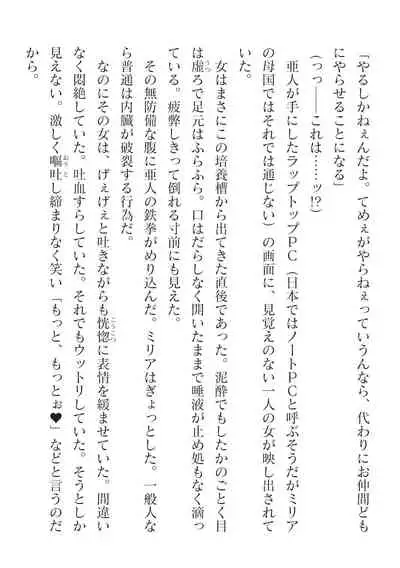 「やるしかねぇんだよ。てめぇがやらねぇっていうんなら、代わりにお仲間ども
にやらせることになる」
(っっ――これは……ッ!?)
　亜人が手にしたラップトップPC（日本ではノートPCと呼ぶそうだがミリア
の母国ではそれでは通じない）の画面に、見覚えのない一人の女が映し出されて
いた。
　女はまさにこの培養槽から出てきた直後であった。泥酔でもしたかのごとく目
は虚ろで足元はふらふら。口はだらしなく開いたままで唾液が止め処もなく滴っ
ている。疲弊しきって倒れる寸前にも見えた。
　その無防備な腹に亜人の鉄拳がめり込んだ。ミリアはぎょっとした。一般人な
ら普通は内臓が破裂する行為だ。
　なのにその女は、げぇげぇと吐きながらも恍惚に表情を緩ませていた。間違い
なく悶絶していた。吐血すらしていた。それでもウットリしていた。そうとしか
見えない。激しく嘔吐し締まりなく笑い「もっと、もっとぉ♥」などと言うのだ
から。